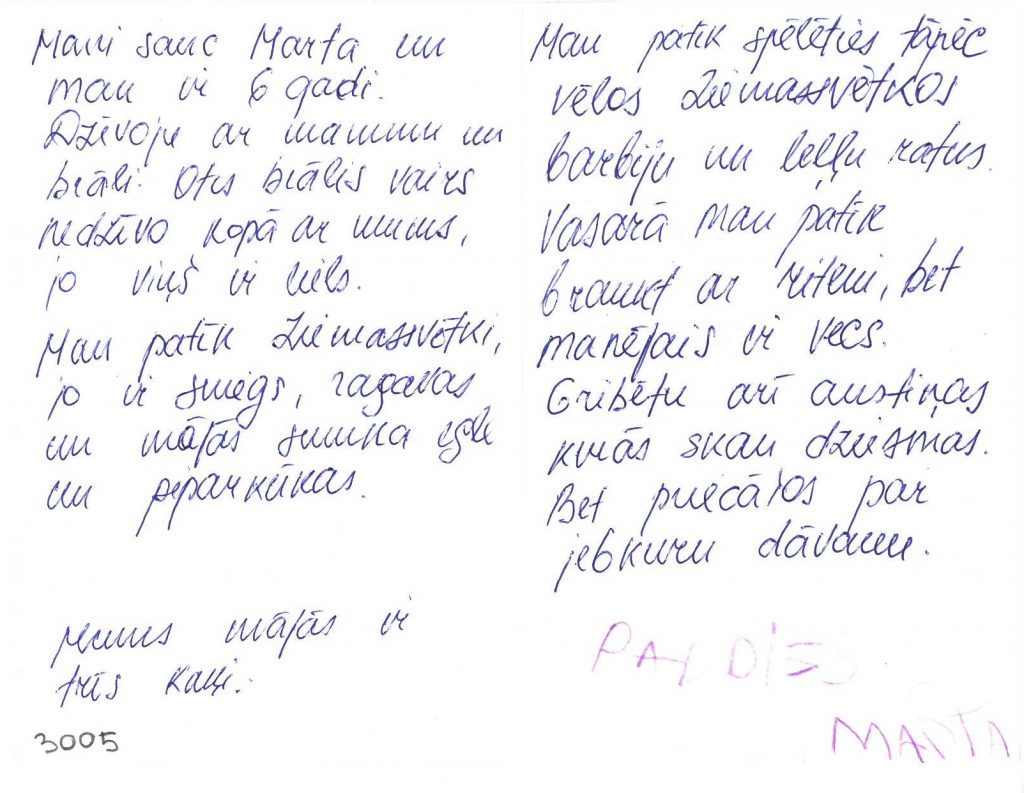 Mani sauc Marta un
man ir 6 gadi.
Dzīvoju ar mammu un
brāli. Otrs brālis vairs
nedzīvo kopā ar mums,
jo viņš ir liels.
Man patīk Ziemassvētki,
jo ir sniegs, ragavas
un mājās smirža egle
un piparkūkas.
Mums mājās ir
trīs kaķi.
3005
Man patīk spēlēties tāpēc
vēlos Ziemassvētkos
barbiju un leļļu ratus.
Vasarā man patīk
braukt ar riteni, bet
manējais ir vecs.
Gribētu arī austiņas
kurās skan dziesmas.
Bet priecāšos par
jebkuru dāvanu.
PALDIES
MARTA